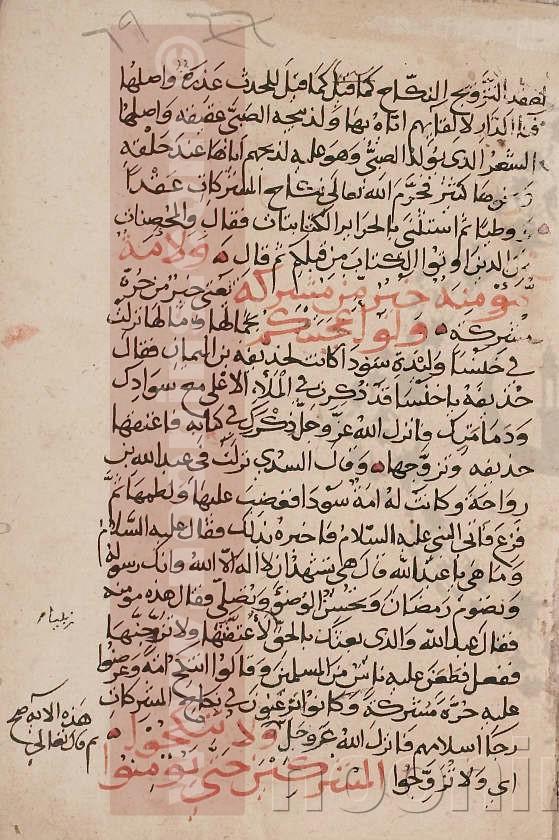 لعقد التزويج النكاح كما قيل للحدث عذرة واصلها
فنا الدار لالقايهم اياه بها ولذبيحة الصبي عقيقة واصلها
الشعر الذي يولد الصبي وهو عليه لذبحهم اياها عند حلقه
كثير فحرم الله تعالى نكاح المشركات عقدا
ووطيا ثم استثنى الحراير الكتابيات فقال والمحصنات
من الذين اوتوا الكتاب من قبلكم ثم قال ولامة
مؤمنة خير من مشركة يعني خير من حرة
مشركة ولو اعجبتكم بجمالها ومالها نزلت
في خنساء وليدة سودا كانت لحذيفة بن اليمان فقال
حذيفة يا خنسا قد ذكرت في الملاء الاعلى مع سوادك
ودمامتك وانزل الله عز وجل ذكرك في كتابه فاعتقها
حذيفة وتزوجها وقال السدي نزلت في عبد الله بن
رواحة وكانت له امة سودا فغضب عليها ولطمها ثم
فزع فاتى النبي عليه السلام فاخبره بذلك فقال عليه السلام
وما هي يا عبد الله قال هي تشهد ان لا اله الا الله وانك رسوله
وتصوم رمضان وتحسن الوضوء وتصلي فقال هذه مومنة
فقال عبد الله والذي بعثك بالحق لاعتقنها ولاتزوجنها
ففعل فطعن عليه ناس من المسلمين وقالوا اتنكح امة وعرضوا
عليه حرة مشركة وكانوا يرغبون في نكاح المشركات
رجا اسلامهم فانزل الله عز وجل ولا تنكحوا
هذه الاية
ثم قال تعالى
اي ولا تزوجوا المشركين حتى يؤمنوا